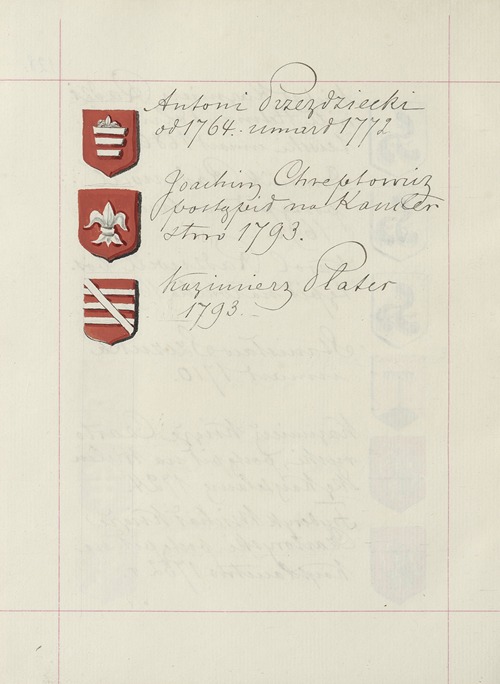 Antoni Przezdziecki
od 1764. umarł 1772
Joachim Chreptowicz
postąpił na Kancler
stwo 1793.
Kazimierz Plater
1793.